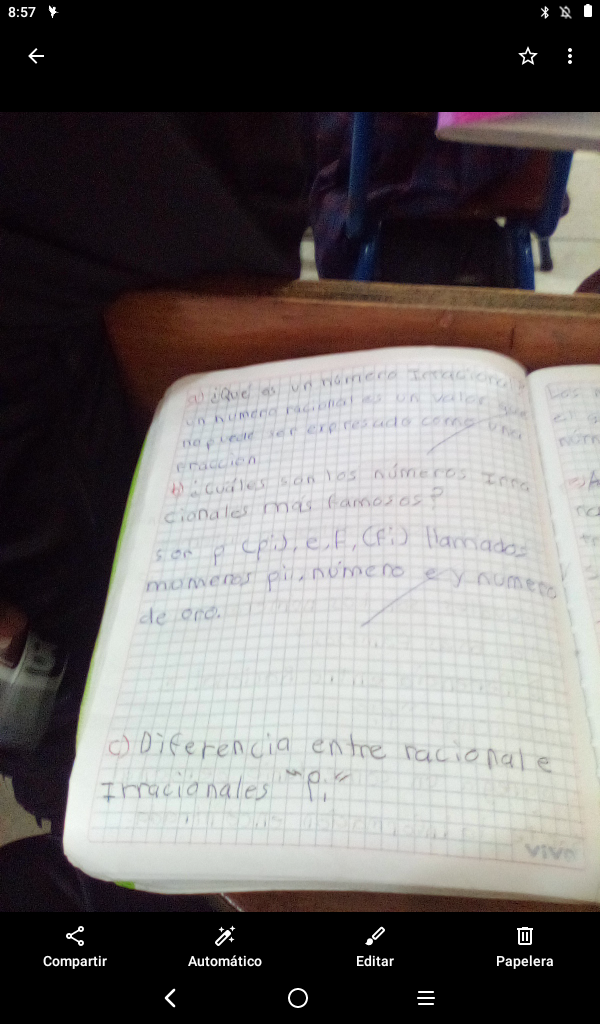 8:57
a) ¿Qué es un número Irracional
un numero racional es un valor que
no puede ser expresado como una
fracción
b) ¿Cuáles son los números Irra
cionales mas famosos?
son p (pi), e, F, (Fi) llamados
momeros pi, número e y numero
de oro.
c) Diferencia entre racional e
Irracionales "Pi"
vivo
Los
el
núm
Compartir
Automático
Editar
Papelera